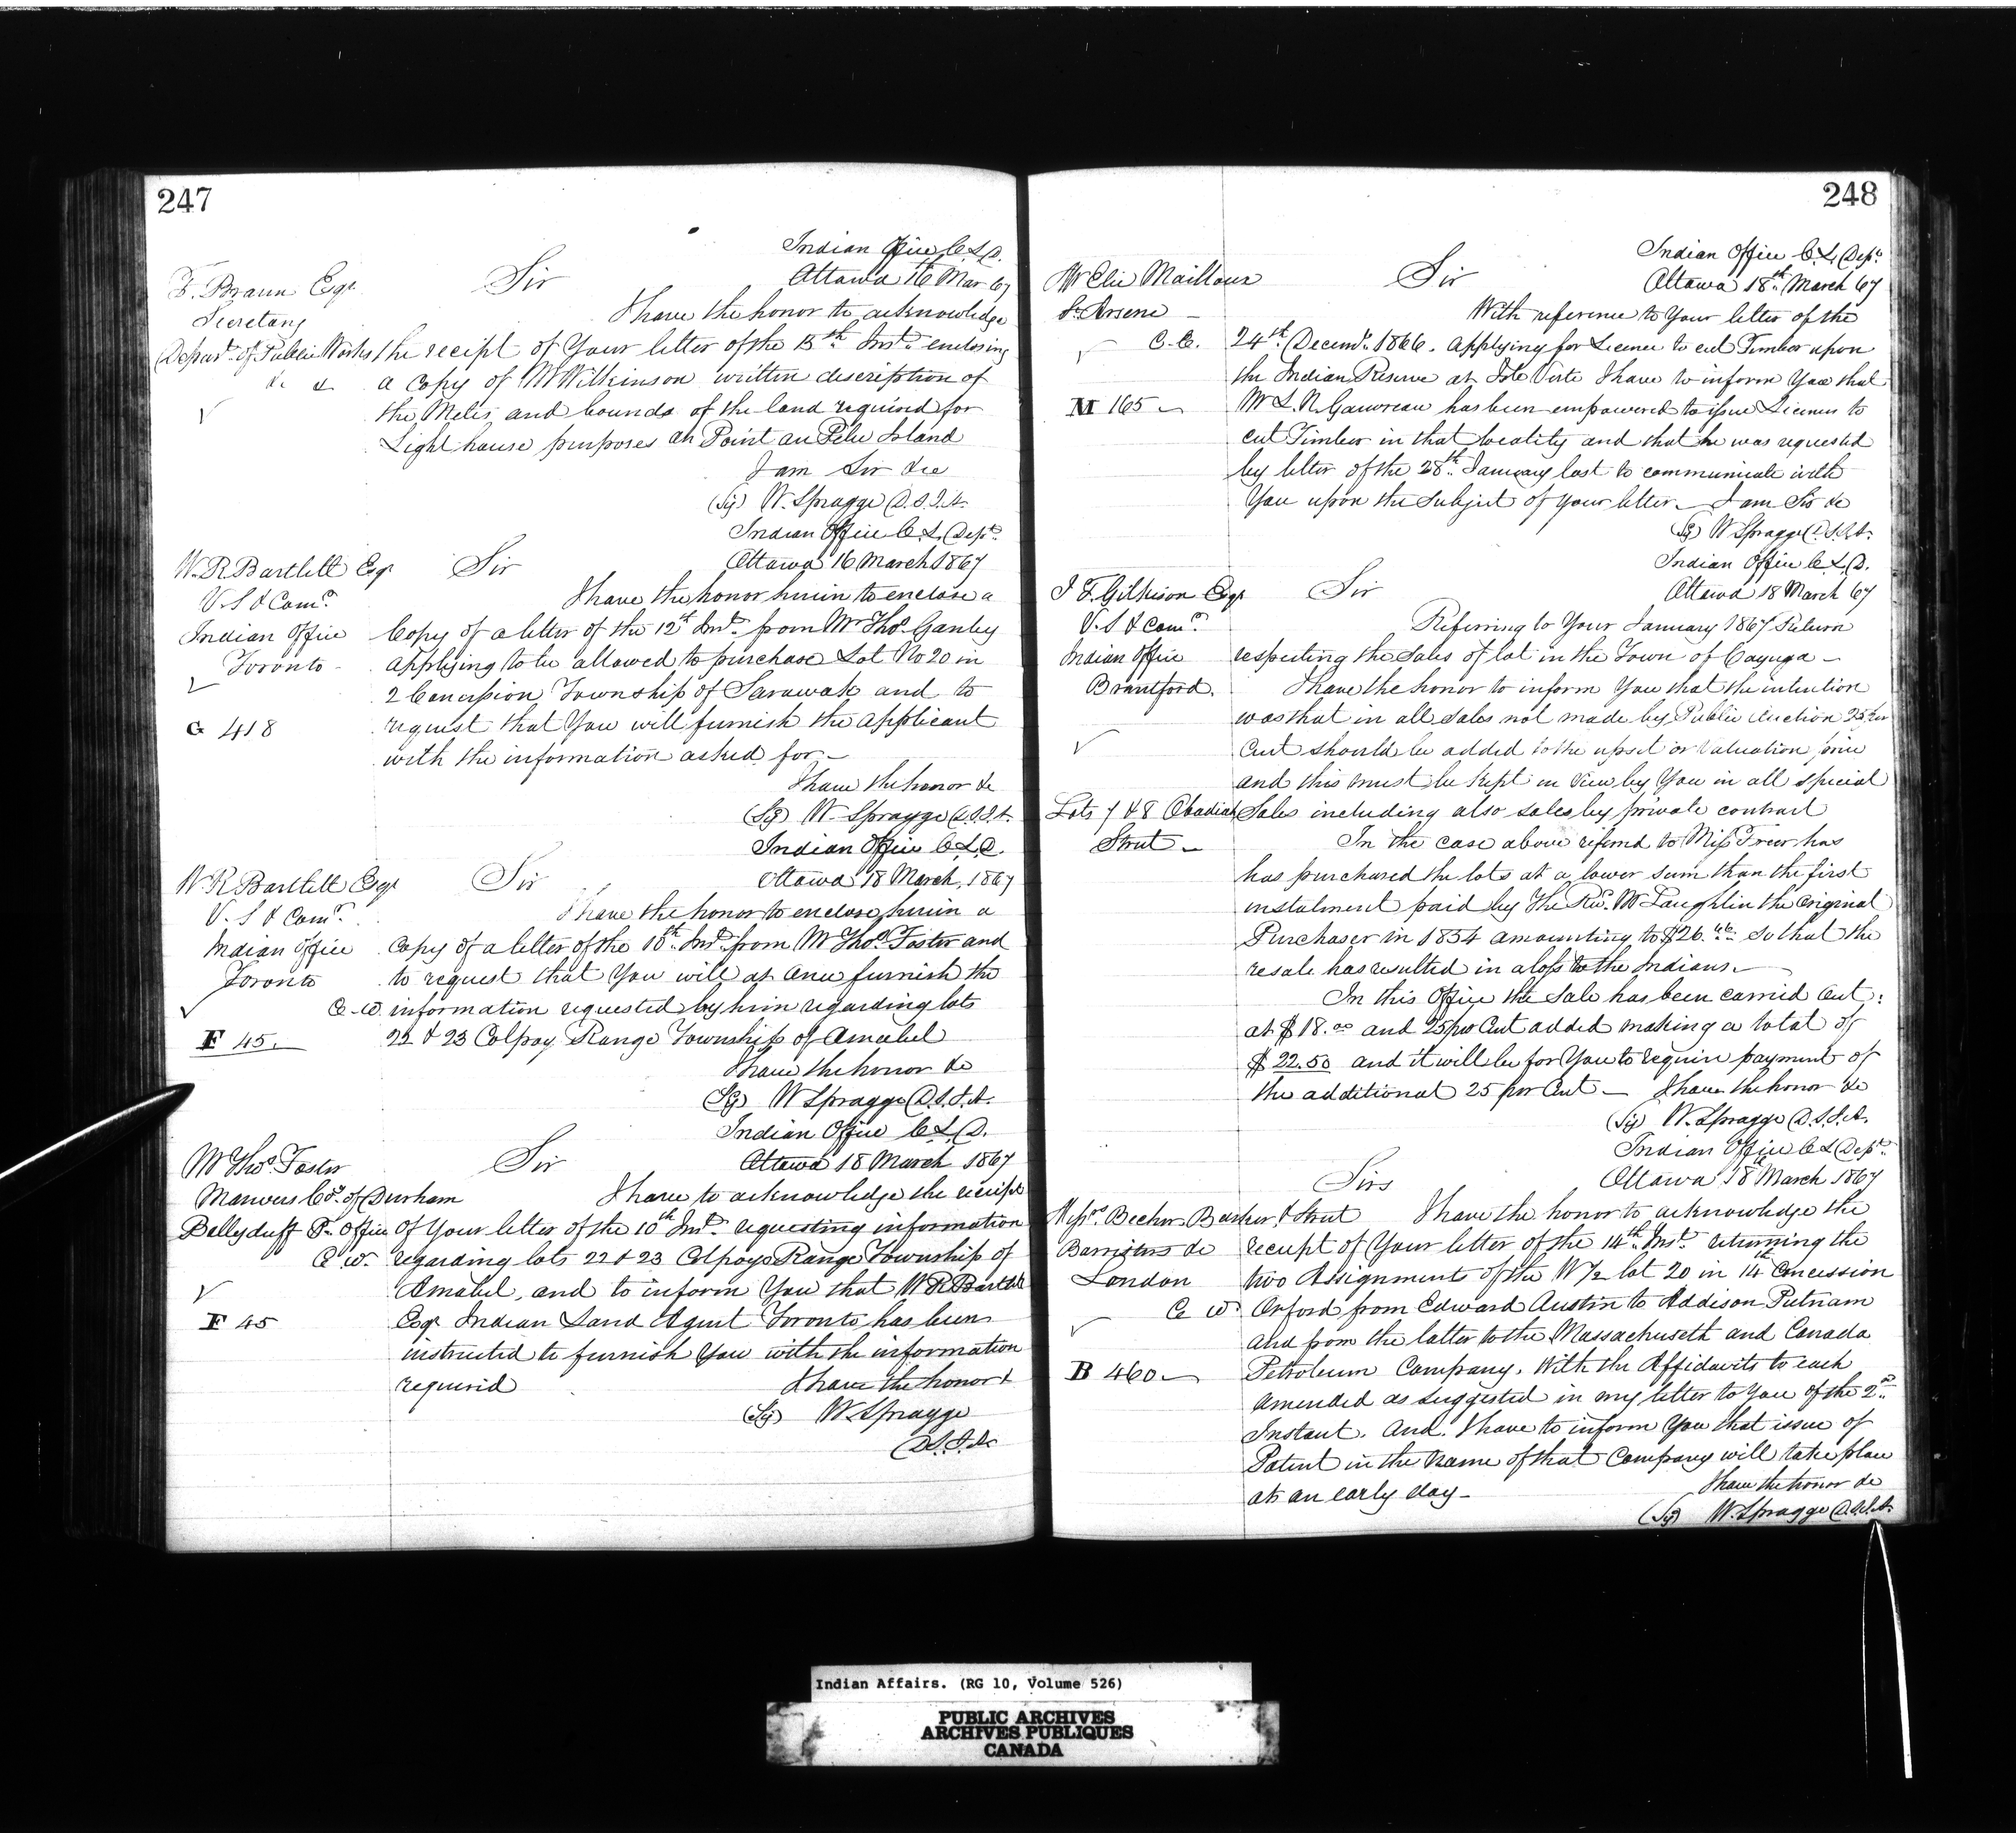 247
Indian Office C.L.D.
F. Braun Esqr Sir Ottawa 16th Mar 67
Secretary I have the honor to acknowledge
Depart. of Public Works the receipt of Your letter of the 13th Inst. enclosing
&c & a Copy of Mr Wilkinson written description of
the Metes and bounds of the land required for
Light house purposes on Point au Pelee Island
I am Sir &c
(Sg) W. Spragge D.S.I.A.
Indian Office C.L. Dept.
W. R Bartlett Esqr Sir Ottawa 16 March 1867
V.S & Comr. I have the honor herein to enclose a
Indian Office Copy of a letter of the 12th Inst. from Mr Thos. Ganley
Toronto - applying to be allowed to purchase Lot No 20 in
2 Concession Township of Sarawak and to
G 418 request that You will furnish the applicant
with the information asked for -
I have the honor &c
(Sg) W. Spragge D.S.I.A.
Indian Office C.L.D.
W R Bartlett Esqr Sir Ottawa 18 March, 1867
V. S & Comr. I have the honor to enclose herein a
Indian Office Copy of a letter of the 10th Inst. from Mr Thos. Foster and
Toronto to request that You will at once furnish the
C-W. information requested by him regarding lots
F 45. 22 & 23 Colpoy Range Township of Amabel
I have the honor &c
(Sg) W Spragge D.S.I.A.
Indian Office C.L.D.
Mr Thos. Foster Sir Ottawa 18 March 1867
Manvers Co. of Durham I have to acknowledge the receipt
Ballyduff P. Office of Your letter of the 10th Inst. requesting information
C W. regarding lots 22 & 23 Colpoys Range Township of
Amabel, and to inform You that W R Bartlett
F 45 Esqr Indian Land Agent Toronto has been
instructed to furnish You with the information
required I have the honor &
(Sg) W. Spragge
D.S.I.A.
248
Indian Office C.L. Dept.
Mr Elie Mailloux Sir Ottawa 18th March 67
St Arsene - With reference to Your letter of the
C.E. 24th Decemr. 1866. applying for Licence to cut Timber upon
the Indian Reserve at Isle Verte I have to inform You that
M 165 - Mr L. N. Gauvreau has been empowered to issue Licenses to
cut Timber in that locality and that he was requested
by letter of the 28th January last to communicate with
You upon the subject of your letter - I am Sir &c
(Sg) W Spragge D.S.I.A.
Indian Office C.L.D.
J. T. Gilkison Esqr Sir Ottawa 18 March 67
V.S & Comr. Referring to Your January 1867 Return
Indian Office respecting the Sales of lot in the Town of Cayuga -
Brantford. I have the honor to inform You that the intention
was that in all sales not made by Public Auction 25 per
Cent should be added to the upset or Valuation price
and this must be kept in View by You in all special
Lots 7 & 8 Obadiah Sales including also sales by private contract
Street - In the case above referred to Miss Freer has
has purchased the lots at a lower sum than the first
instalment paid by the Rev. Mr Laughlin the Original
Purchaser in 1854 amounting to $26. so that the
resale has resulted in a loss to the Indians. -
In this Office the Sale has been carried Out:
at $18.00 and 25 per Cent added making a total of
$22.50 and it will be for You to require payment of
the additional 25 per Cent - I have the honor &c
(Sg) W. Spragge D.S.I.A.
Indian Office C.L Dept.
Sirs Ottawa 18 March 1867
Messrs. Becher, Barker & Street I have the honor to acknowledge the
Barristers &c receipt of Your letter of the 14th Inst. returning the
London two Assignments of the W 1/2 lot 20 in 14th Concession
C W Orford from Edward Austin to Addison Putnam
and from the latter to the Massachusetts and Canada
B 460 - Petroleum Company. With the Affidavits to each
amended as suggested in my letter to You of the 2nd
Instant. And. I have to inform You that issue of
Patent in the name of that Company will take place
at an early day - I have the honor &c
(Sg) W. Spragge D.S.I.A.
Indian Affairs. (RG 10, Volume 526)
PUBLIC ARCHIVES
ARCHIVES PUBLIQUES
CANADA